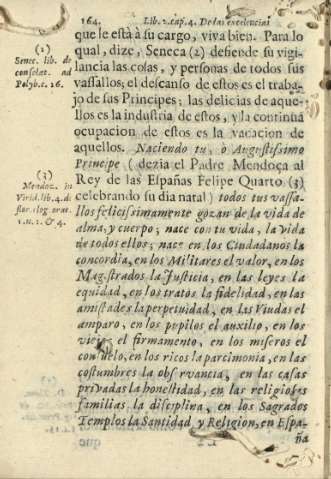 164. Lib. 2. cap. 4. De las excelencias
que le està à su cargo, viva bien. Para lo
qual, dize, Seneca (2) defiende su vigi-
lancia las casas, y personas de todos sus
vassallos; el descanso de estos es el traba-
jo de sus Principes; las delicias de aque-
llos es la industria de estos, y la continua
ocupacion de estos es la vacacion de
aquellos. Naciendo tu, ò Augustissimo
Principe (dezia el Padre Mendoça al
Rey de las Españas Felipe Quarto (3)
celebrando su dia natal) todos tus vassa-
llos felicissimamente gozan de la vida de
alma, y cuerpo; nace con tu vida, la vida
de todos ellos; nace en los Ciudadanos la
concordia, en los Militares el valor, en los
Magistrados la Justicia, en las leyes la
equidad, en los tratos la fidelidad, en las
amistades la perpetuidad, en las Viudas el
amparo, en los pupilos el auxilio, en los
viejos el firmamento, en los miseros el
consuelo, en los ricos la parcimonia, en las
costumbres la observancia, en las casas
privadas la honestidad, en las religiosas
familias la disciplina, en los Sagrados
Templos la Santidad, y Religion, en Espa-
ña
(2)
Senec. lib. de
consolat. ad
Polyb. c. 26.
(3)
Mendoz. in
Virid. lib. 4. de
flor. elog. orat.
1. n. 1. & 4.